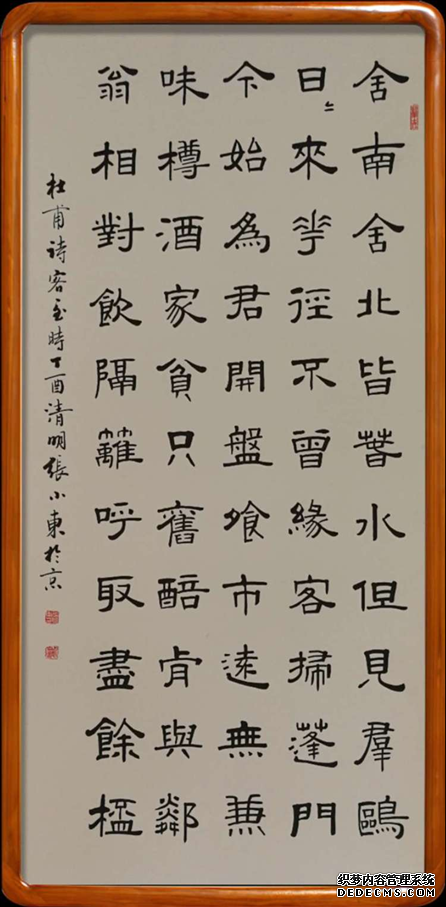 舍南舍北皆萅水但見羣鷗
日〻來花徑不曾緣客掃蓬門
今始為君開盤飧市遠無兼
味樽酒家貧只舊醅肯與鄰
翁相對飲隔籬呼取盡餘桮
杜甫诗客至時丁酉清明張小東於京
织梦内容管理系统
DEDECMS.COM